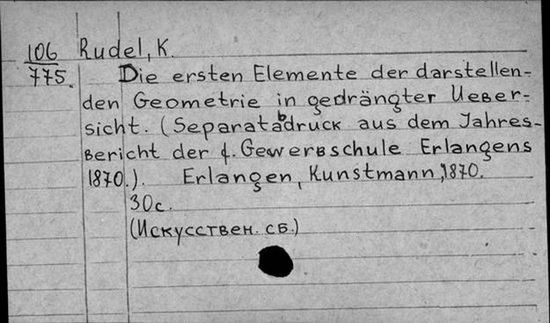 106 Rudel, K.
775. Die ersten Elemente der darstellen-
den Geometrie in gedrängter Ueber-
sicht. (Separatabdruck aus dem Jahres-
bericht der f. Gewerbschule Erlangens
1870.). Erlangen, Kunstmann, 1870.
30с.
(Искусствен. сб.)